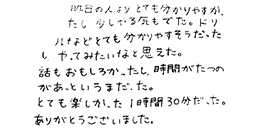 昨日の人よりとても分かりやすが、
たし少しやる気もでた。ドリ
ルなどとても分かりやすそうだった
し、やってみたいなと思えた。
話もおもしろかったし、時間がたつの
があっというまだた。
とても楽しかった1時間30分だった。
ありがとうございました。